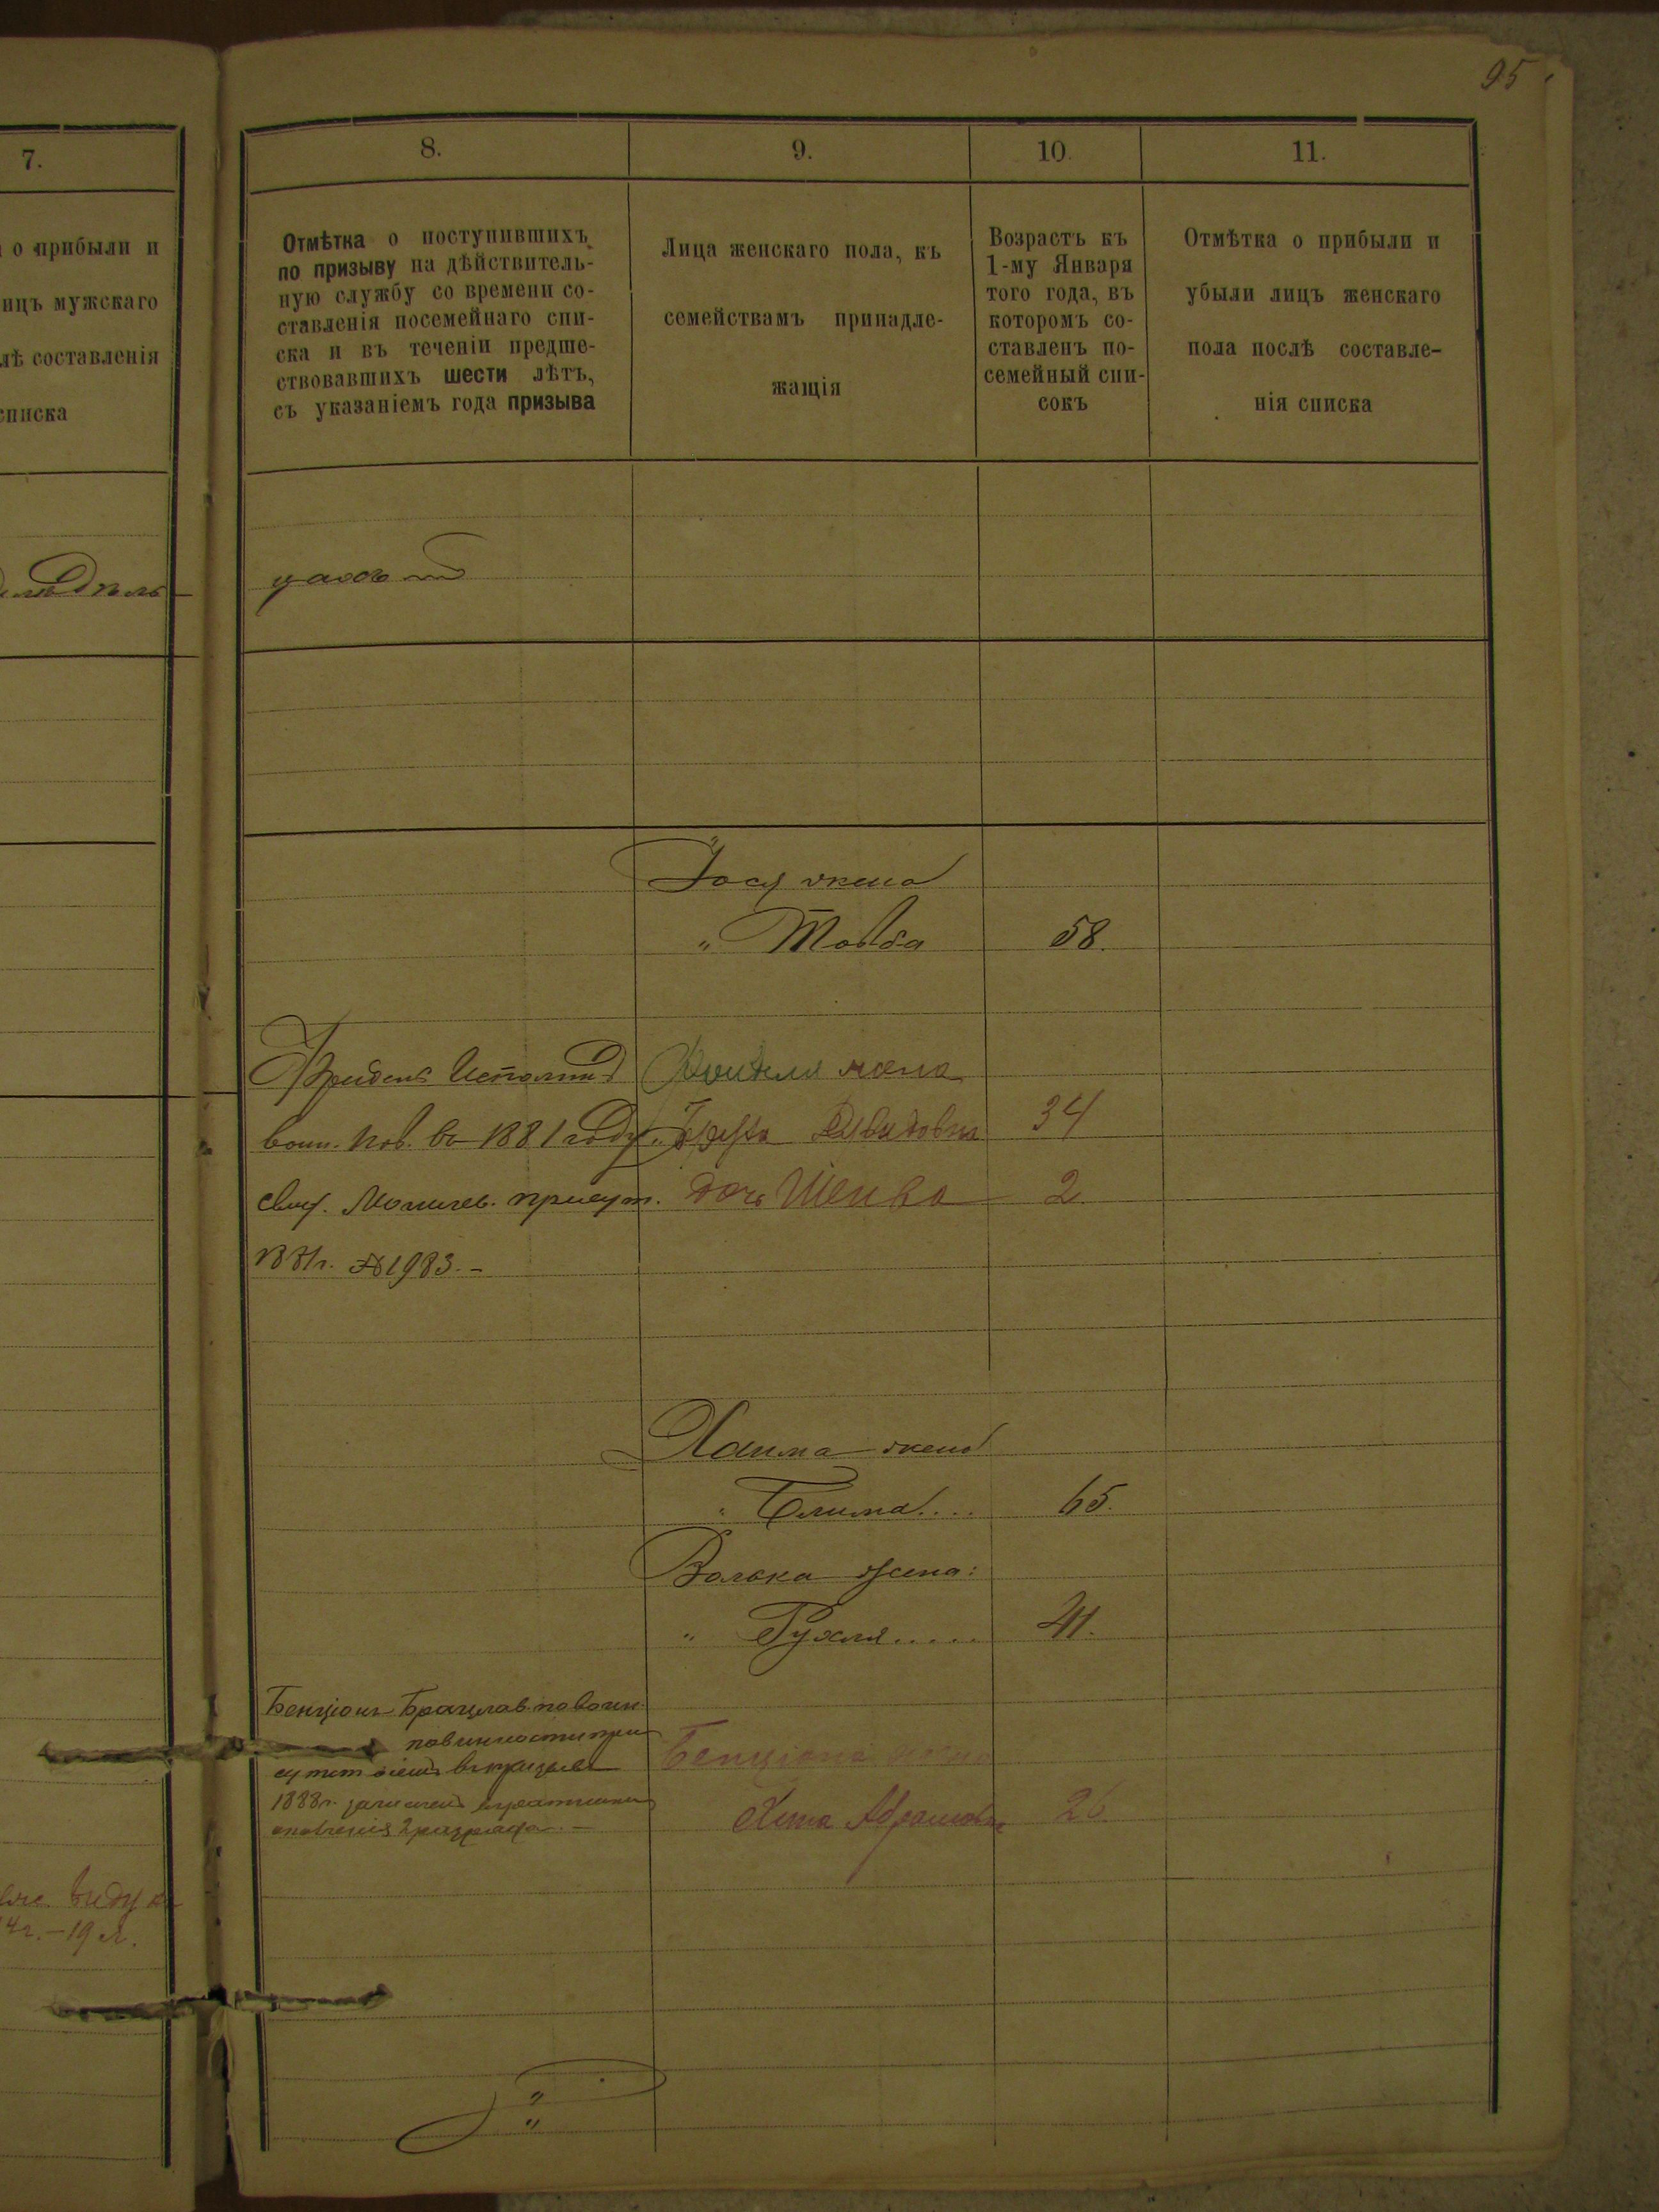 95
7.
8.
9.
10.
11.
о прибыли и
ицъ мужскаго
лѣ составленія
списка
Отмѣтка о поступившихъ
по призыву на дѣйствитель-
ную службу со времени со-
ставленія посемейнаго спи-
ска и въ теченіи предше-
ствовавшихъ шести лѣтъ,
съ указаніемъ года призыва
Лица женскаго пола, къ
семействамъ принадле-
жащія
Возрастъ къ
1-му Января
того года, въ
которомъ со-
ставленъ по-
семейный спи-
сокъ
Отмѣтка о прибыли и
убыли лицъ женскаго
пола послѣ составле-
нія списка
жена
" Товба 58.
жена
воин. пов. въ 1881 году. 34
свид. Могилев. присут. дочь Шейва 2
1881г. №1983.-
Хаима жена
" Блима.... 65.
Волька жена:
" Рухля..... 41.
Бенціонъ Брацлав. по воин.
повинности при
сутствіемъ въ призывъ Бенціона жена
1888г. зачисленъ въ ратники
ополченія 2 разряда.- Хина Абрамовна 26
виду
4г.-19 л.